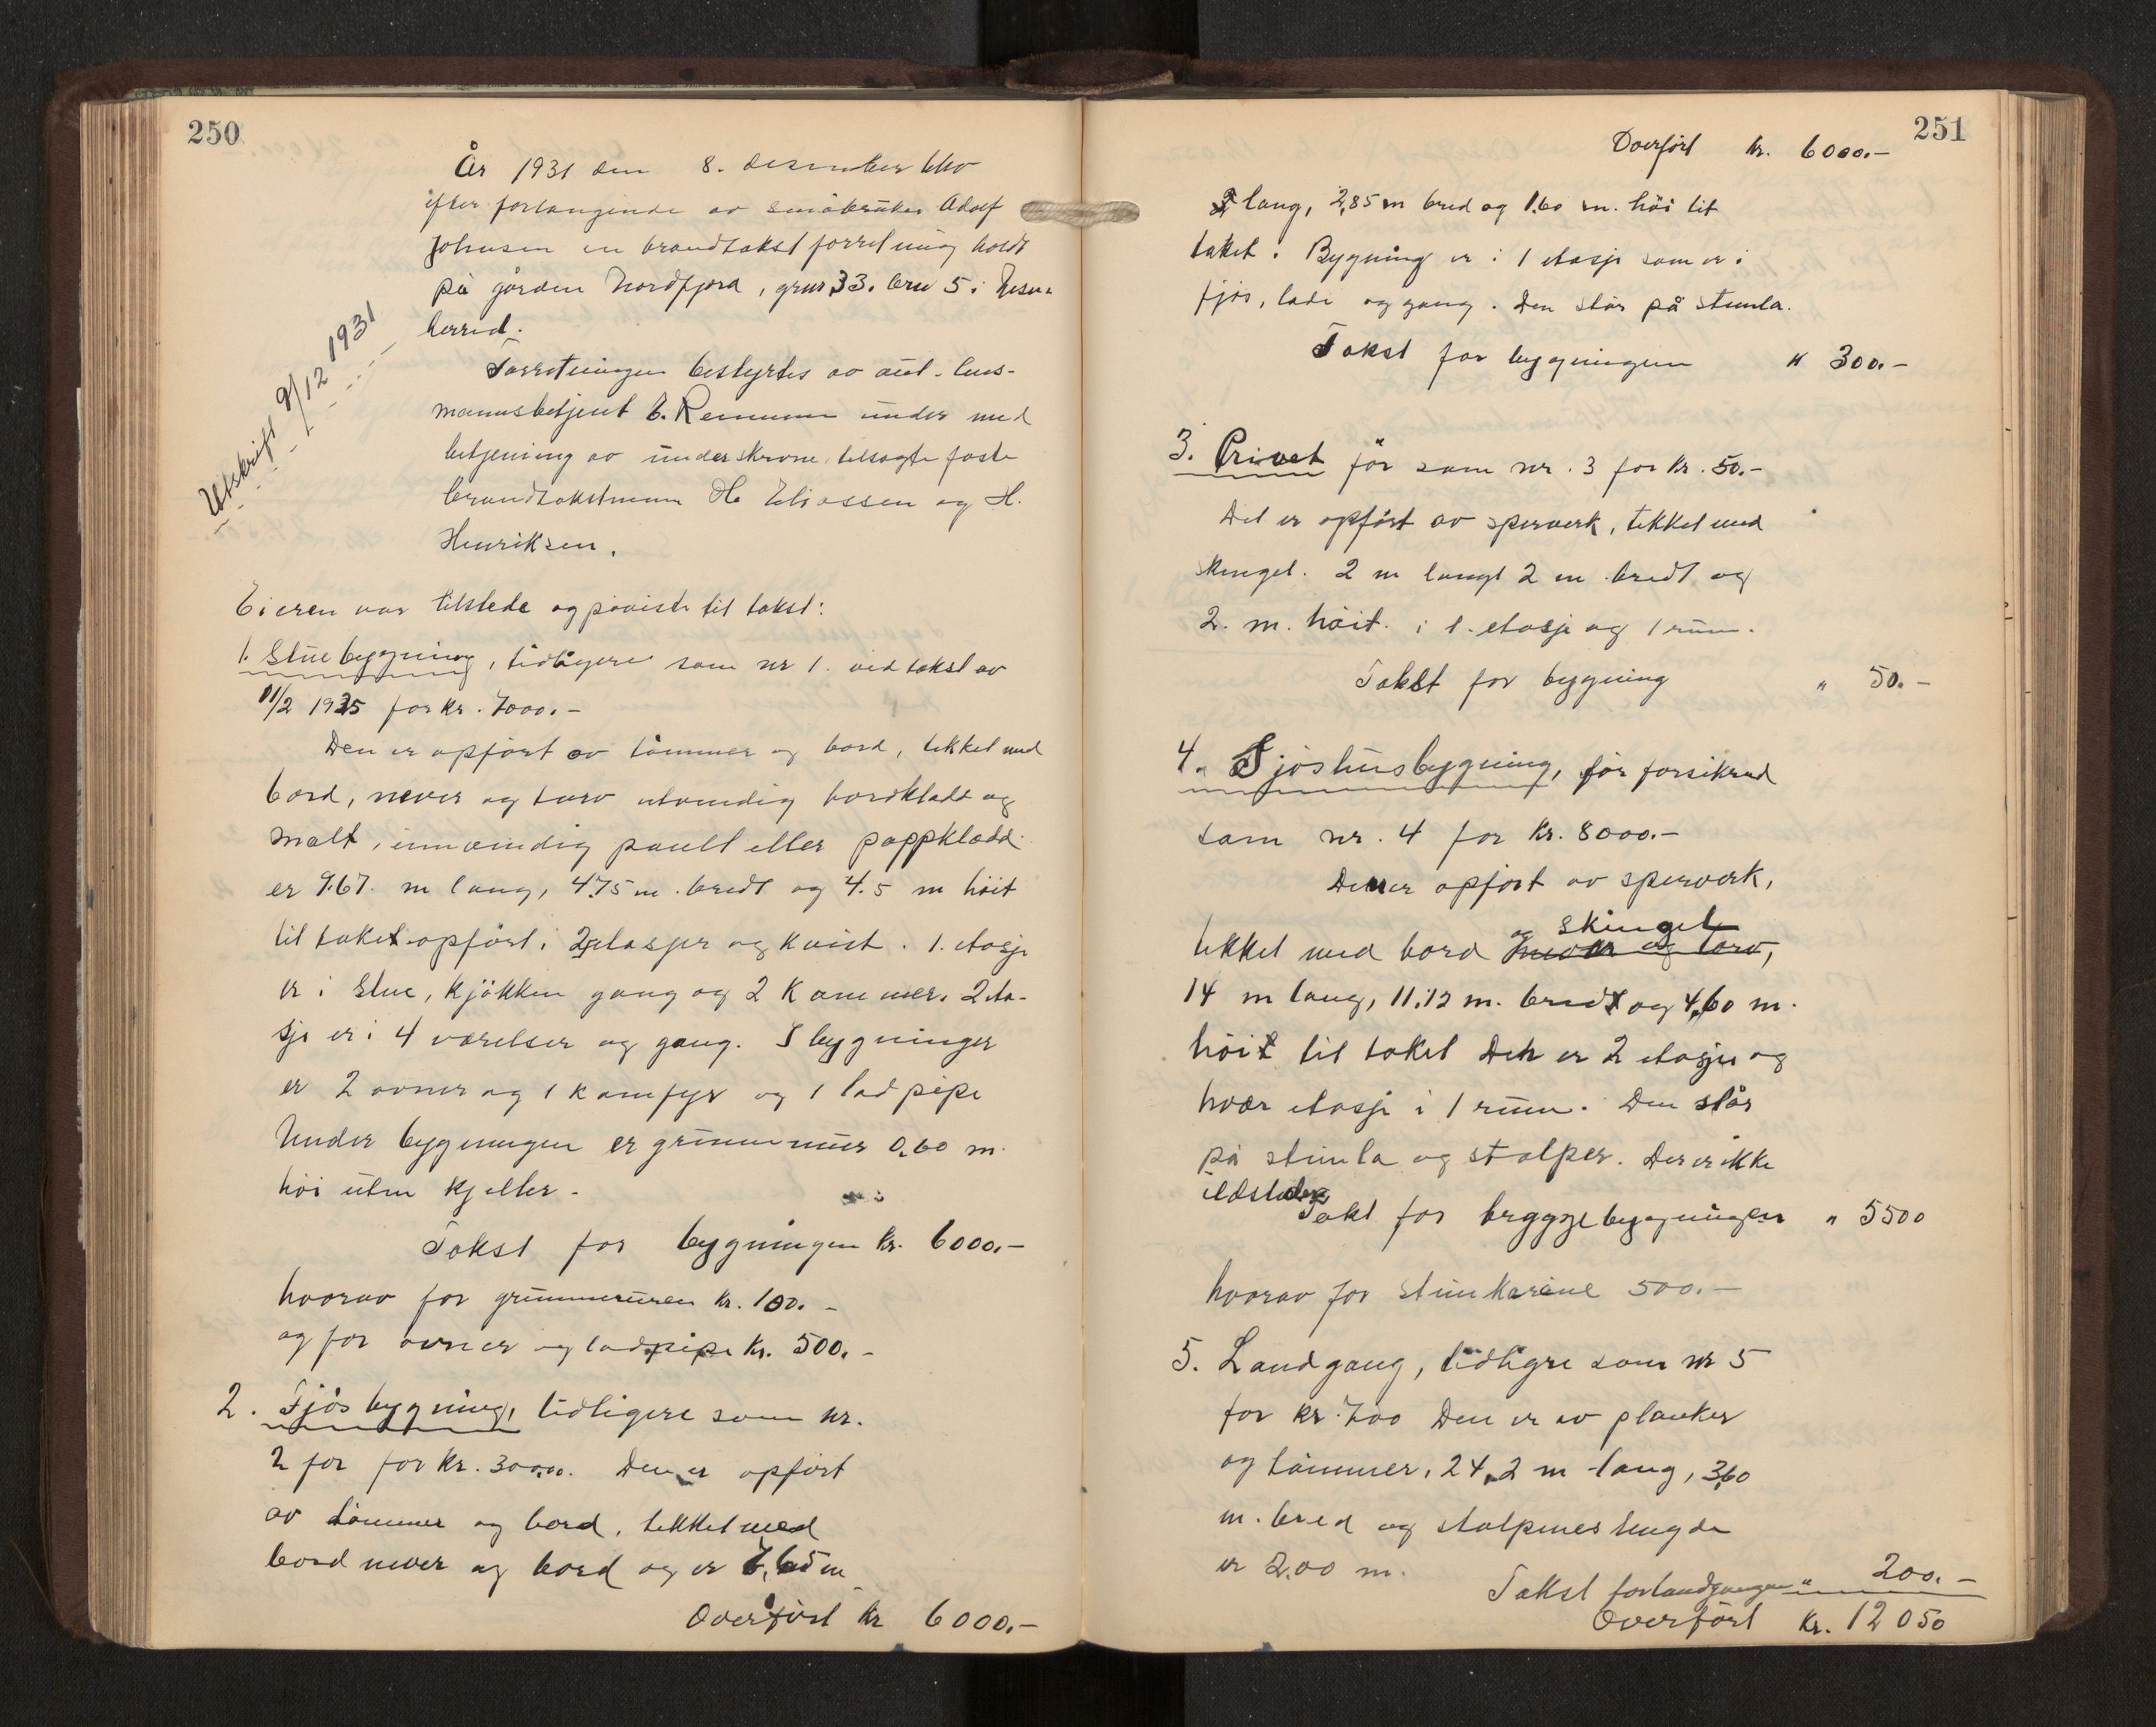 250
År 1931 den 8. desember blev
efter forlangende av småbruker Adolf
Johnsen en brandtakst forretning holdt
på gården Nordfjord, grnr 33. brn 5 i
herred.
Utskrift 9/12 1931
Forretningen bestyrtes av aut. lens-
mannsbetjent E. Remmen under med
betjening av underskrevne, tilsagte faste
brandtakstmenn H. Eliassen og H.
Henriksen.
Eieren var tilstede og påviste til takst:
1. Stuebygning, tidligere som nr 1. ved takst av
11/2 1925 for kr. 7000.-
Den er opført av tømmer og bord, tekket med
bord, never og torv utvendig bordkladt og
malt, innvendig panelt eller pappkladd
er 9.67 m lang, 4.75 m. bredt og 4.5 m höit
til taket opført i 2 etasjer og kvist. 1. etasje
er i stue, kjøkken gang og 2 kammer. 2 eta-
sje er i 4 værelser og gang. I bygninger
er 2 ovner og 1 komfyr og 1 lad pipe
Under bygningen er grunnmur 0.60 m.
høi uten kjeller.
Takst for bygningen kr. 6000.-
hvorav for grunnmuren kr. 100.-
og for ovner og ladpipe kr. 500.-
2. Fjøsbygning, tidligere som nr.
2 for for kr. 300.00. Den er opført
av tømmer og bord, tekket med
bord never og bord og er 7,65 m
Overført kr 6000.-
251
Overført kr. 6000.-
lang, 2,85 m bred og 1,60 m. høi til
taket. Bygning er i 1 etasje som er i
fjøs, lade og gang. Den står på stumla.
Takst for bygningen " 300.-
3. Privet før som nr. 3 for kr. 50.-
Det er opført av sperverk, tekket med
skingel. 2 m langt 2 m bredt og
2. m. høit. i 1. etasje og 1 rum.
Takst for bygning " 50.-
4. Sjøshusbygning, før forsikred
som nr. 4 for kr. 8000.-
Den er opført av sperverk,
og skingel
tekket med bord never og torv,
14 m lang, 11.12 m. bredt og 4,60 m.
høit til taket Den er 2 etasjer og
hvær etasje i 1 rum. Den står
på stumla og stolper. Der er ikke
ildsteder
Takst for bryggebygningen " 5500
hvorav for stumkarene 500.-
5. Landgang, tidligre som nr 5
for kr. 700 Den er av planker
og tømmer, 24,2 m lang, 3,60
m. bred og stolpenes lengde
er 2,00 m.
Takst for landgangen " 200.-
Overført kr. 12 050